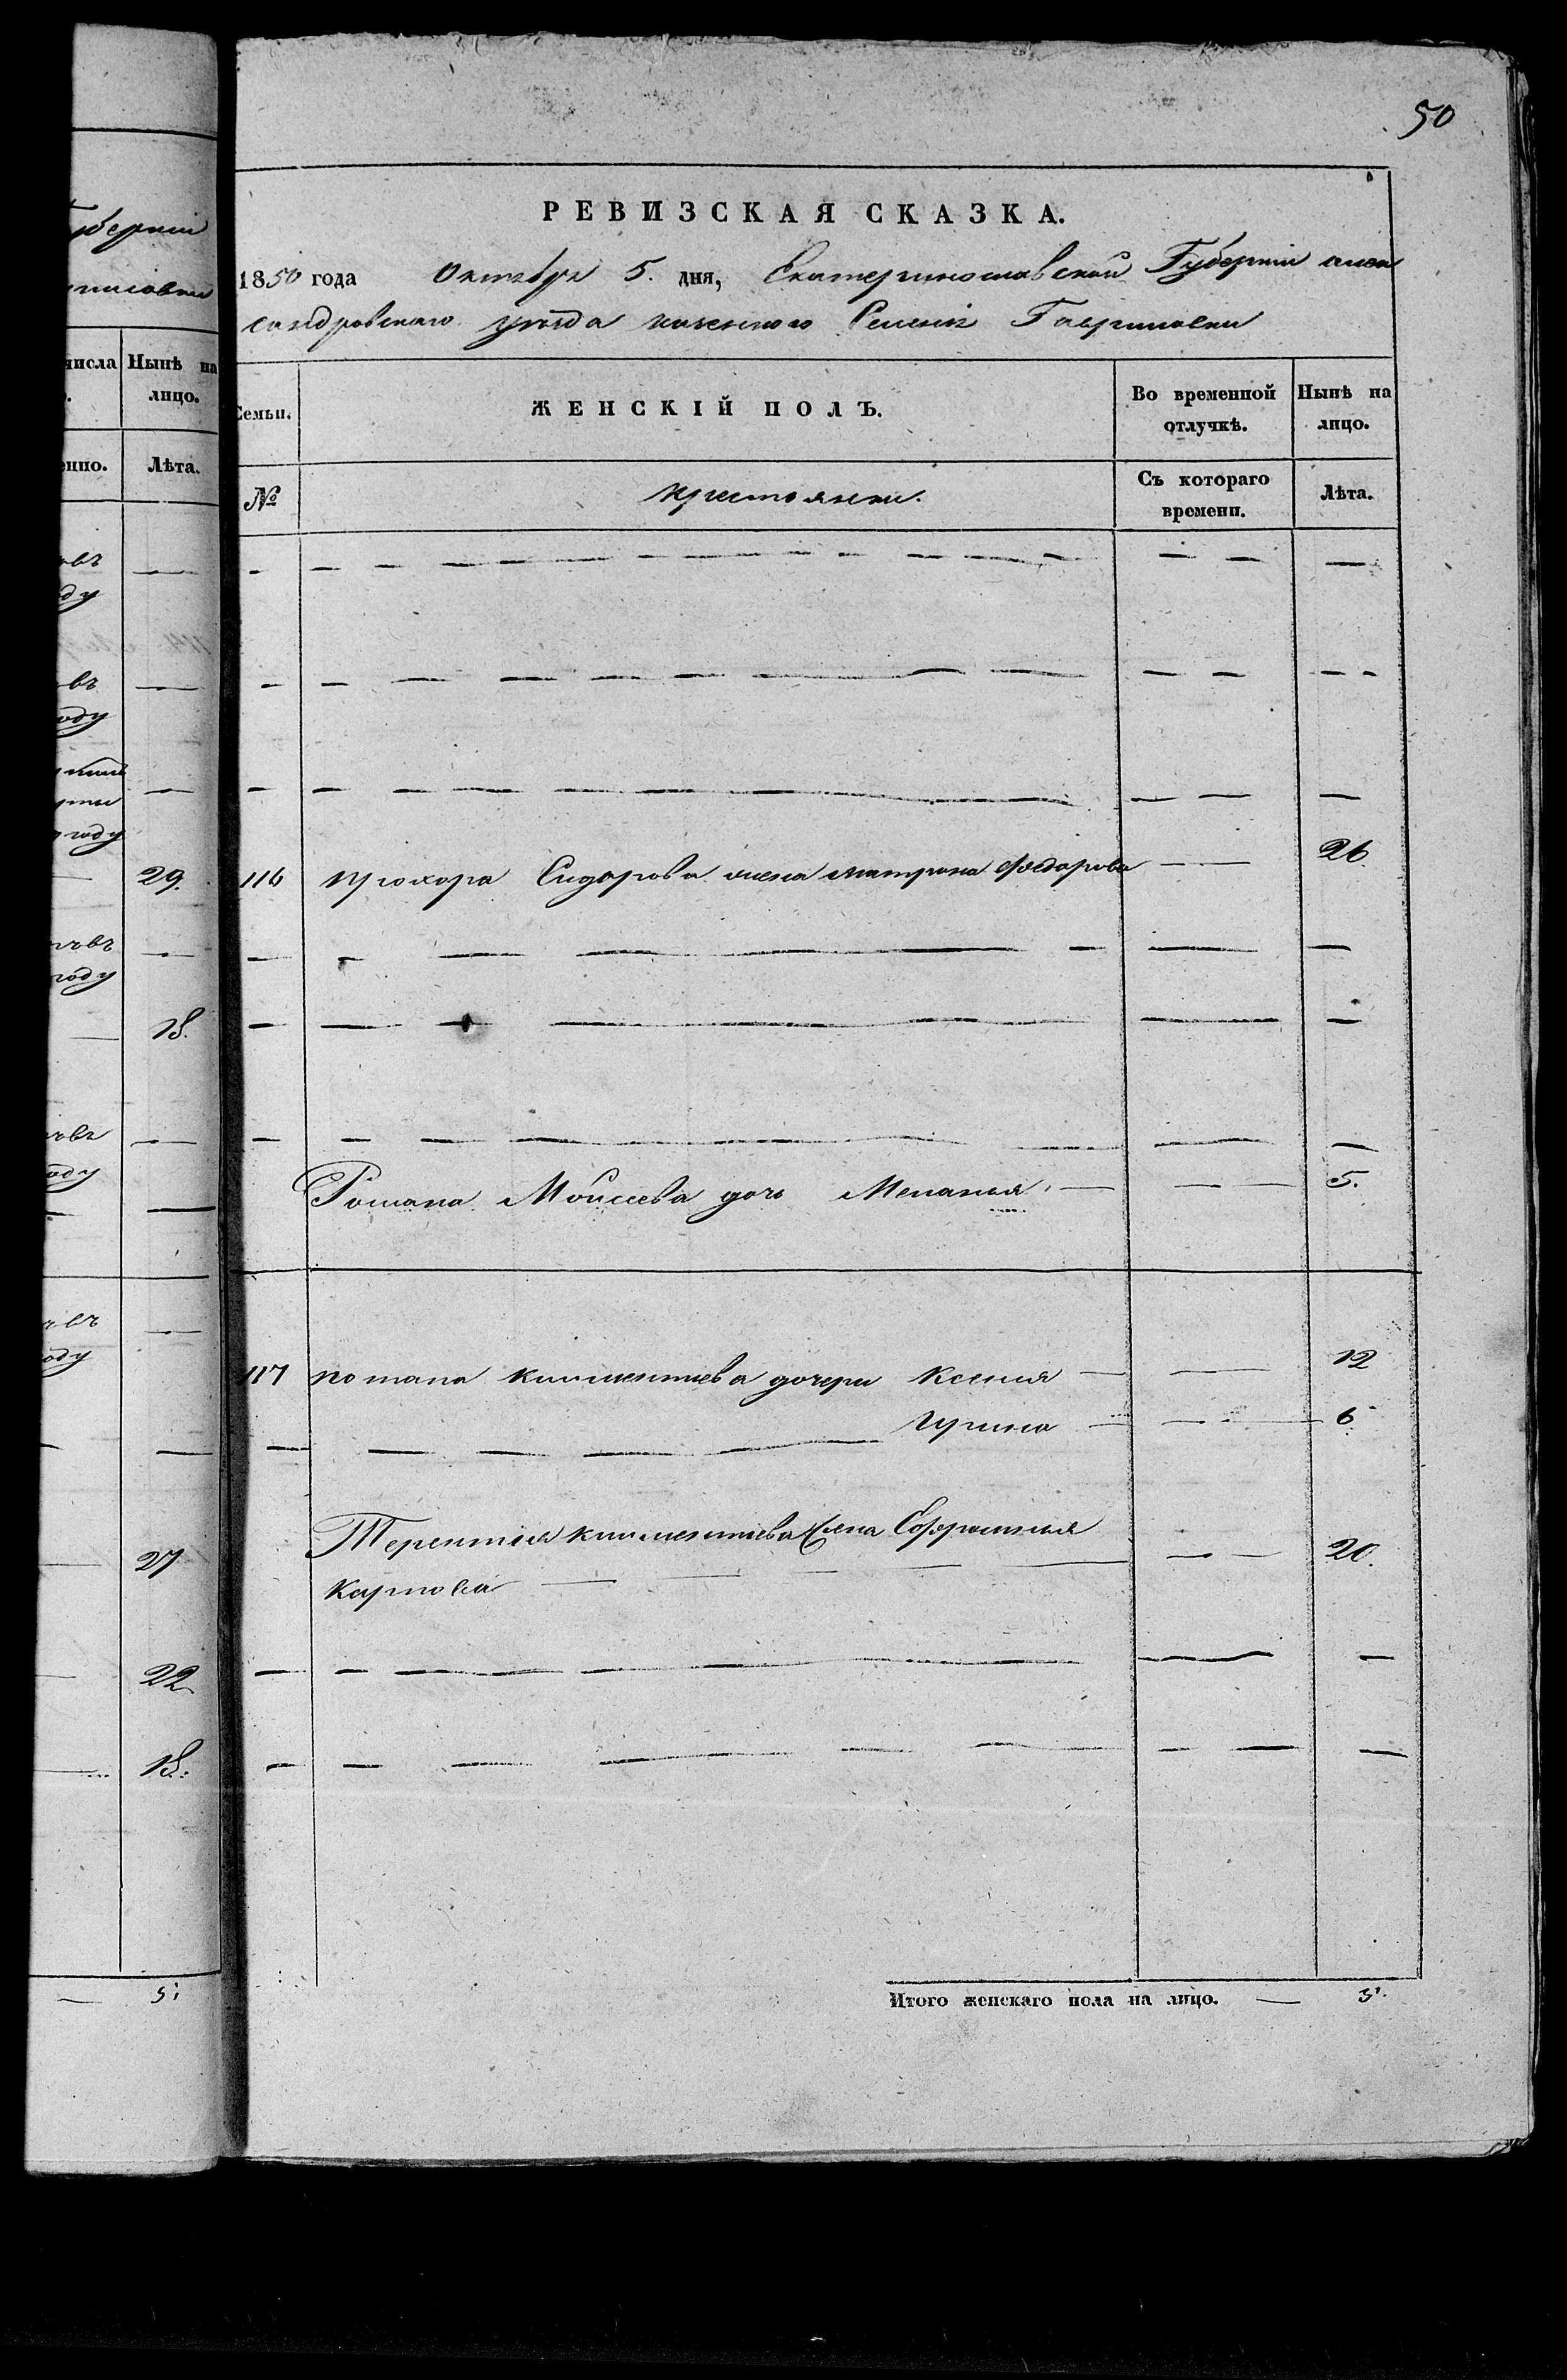 50
РЕВИЗСКАЯ СКАЗКА.
1850 года Октября 5. дня, Екатеринославской Губернiи алек
сандровскаго уезда казенного Селенiя Гавриловки
Семьи.
ЖЕНСКIЙ ПОЛЪ.
Во временной отлучкѣ.
Нынѣ на лицо.
№
крестьянки.
Съ котораго времени.
Лѣта.
116 прохора Сидорова жена матрона Федорова — — 26
Романа Моисеева дочь Меланья — — — 5.
117 потапа климентиева дочери Ксения — — 12
Ирина — — — 6
Терентия климентиева жена Евфросинья
Карпова — — — — — — 20.
Итого женскаго пола на лицо. — 5.
губернiи
числа
Нынѣ на лицо.
Лѣта.
году
году
29.
году
18.
27
22
18.
— 5.